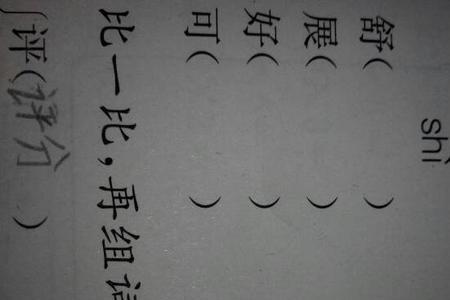 shì
舒( )
展( )
好( )
可( )
比一比,再组
评( )